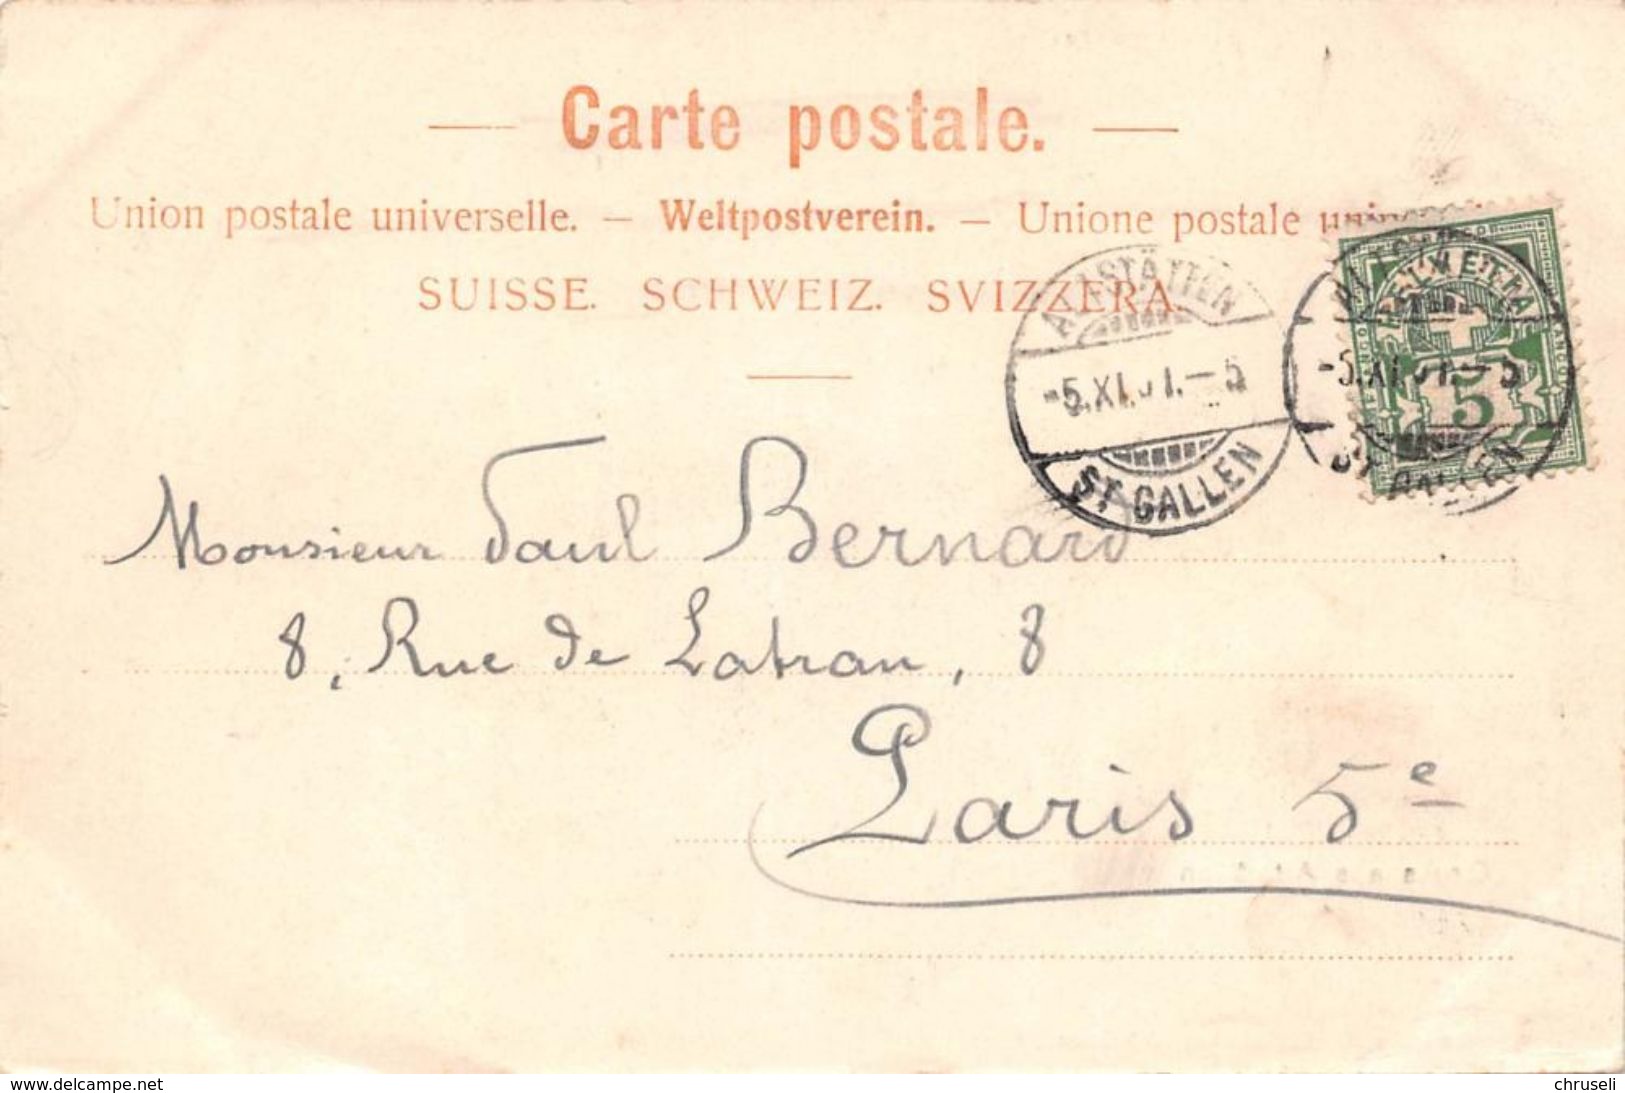 — Carte postale. —
Union postale universelle. — Weltpostverein. — Unione postale
SUISSE. SCHWEIZ. SVIZZERA.
ALTSTÄTTEN
-5.XI.01.-5
ST. GALLEN
-5.XI.01.-5
ST. GALLEN
5
Monsieur Paul Bernard
8, Rue de Latran, 8
Paris 5e
www.delcampe.net
chruseli